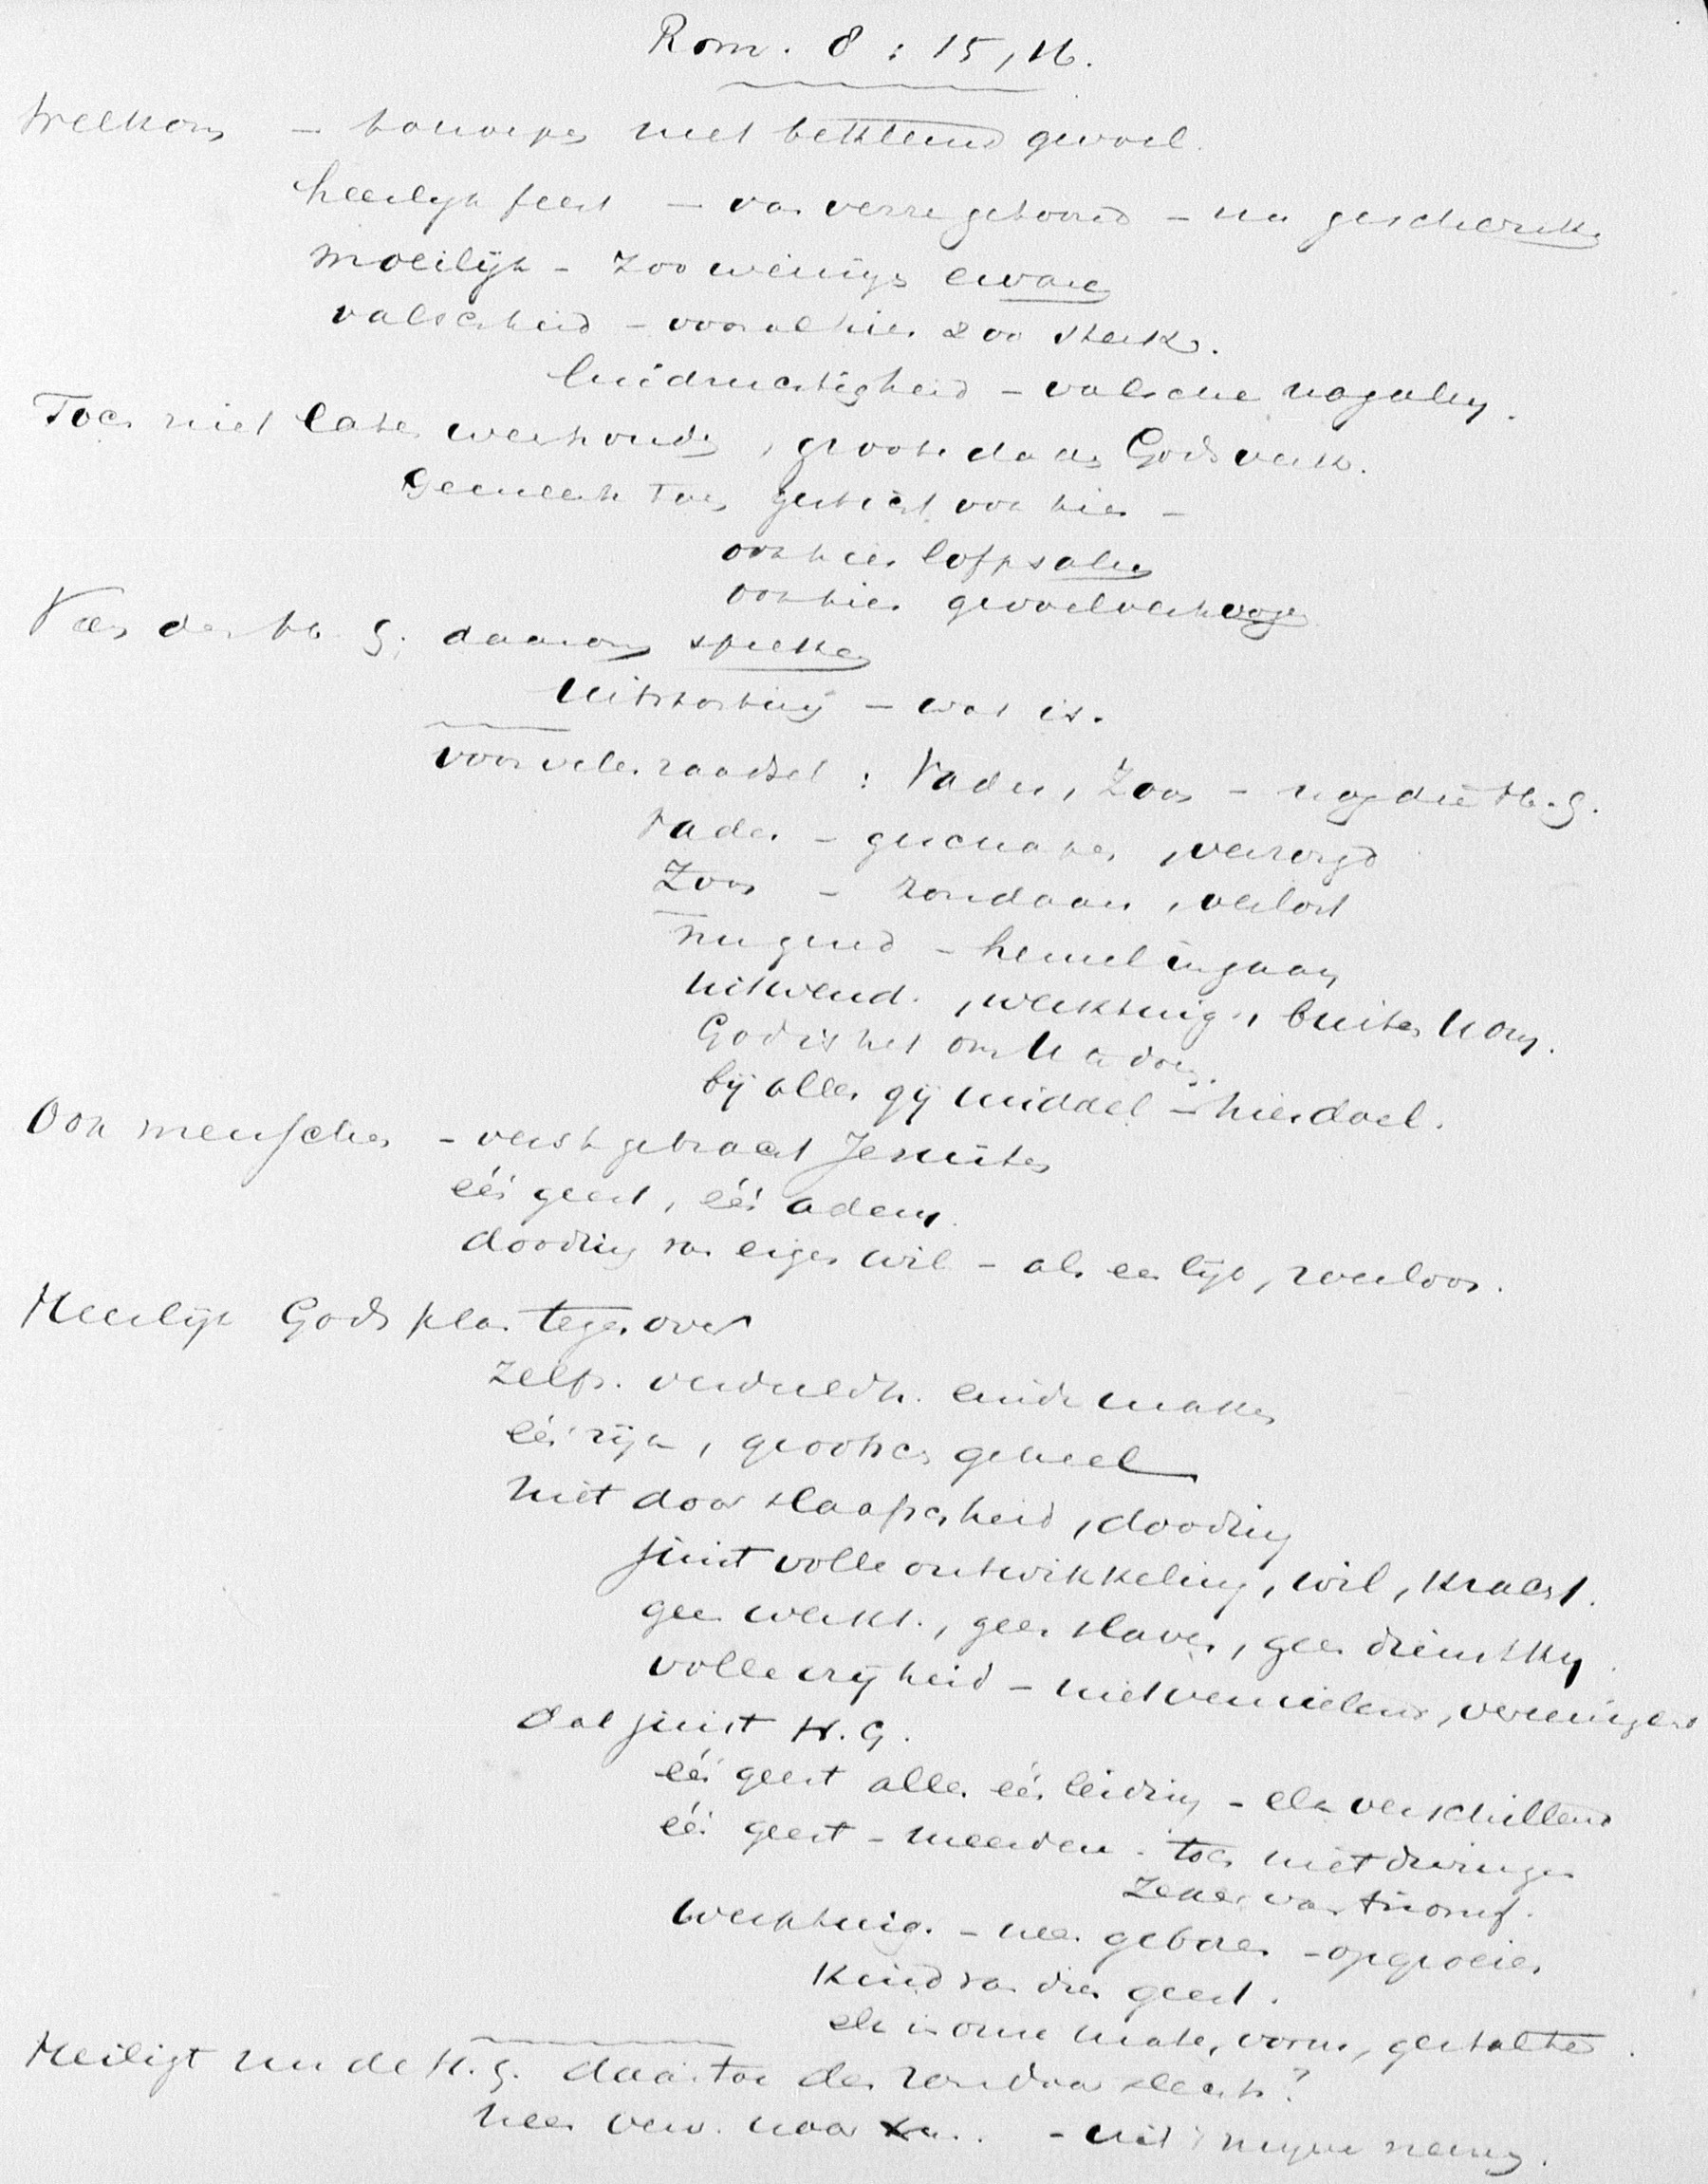 Rom. 8 : 15, 16.
Welkom – met beklemd gevoel.
heerlijk feest – van verre gehoord – nu geschonken
moeilijk – zoo weinigs ervare
valschheid – vooral hier zoo sterk.
luidruchtigheid – valsche nagalm.
Toch niet laten weerhouden, groote daden Gods werk.
Gemeente toen gesticht ook hier –
ook hier lofpsalm
ook hier gevoelverhoogen
Van den H. G. daarom spreken
Uitstorting – wat is.
voor velen raadsel : Vader, Zoon – nog die H. G.
Vader – geschapen, verzorgd
Zoon – zondaar, verlost
nu gered – hemel ingaan
uitwend., werktuig., buiten U om.
God is het om U te doen.
bij alles gij middel – hier doel.
Ook menschen – verst gebracht Jesuiten
één geest, één adem.
dooding van eigen wil – als een lijk, weerloos.
Heerlijk Gods plan tegenover
zelfs. verdeeldh. einde maken
één rijk, grootsch geheel
niet door slaafschheid, dooding
juist volle ontwikkeling, wil, kracht.
geen werkt., geen slaven, geen dienstkn.
volle vrijheid – niet vernielend, vereenigend
dat juist H. G.
één geest allen één leiding – elk verschillend
één geest – meerdere. toch niet dwingen
zeker van triomf.
Werktuig. – neen geboren – opgroeien
Kind van dien geest.
elk in onze mate, vorm, gestalte.
Heiligt nu de H. G. daartoe den zondaar slechts?
neen verw. naar – uit 't mijne nemen.